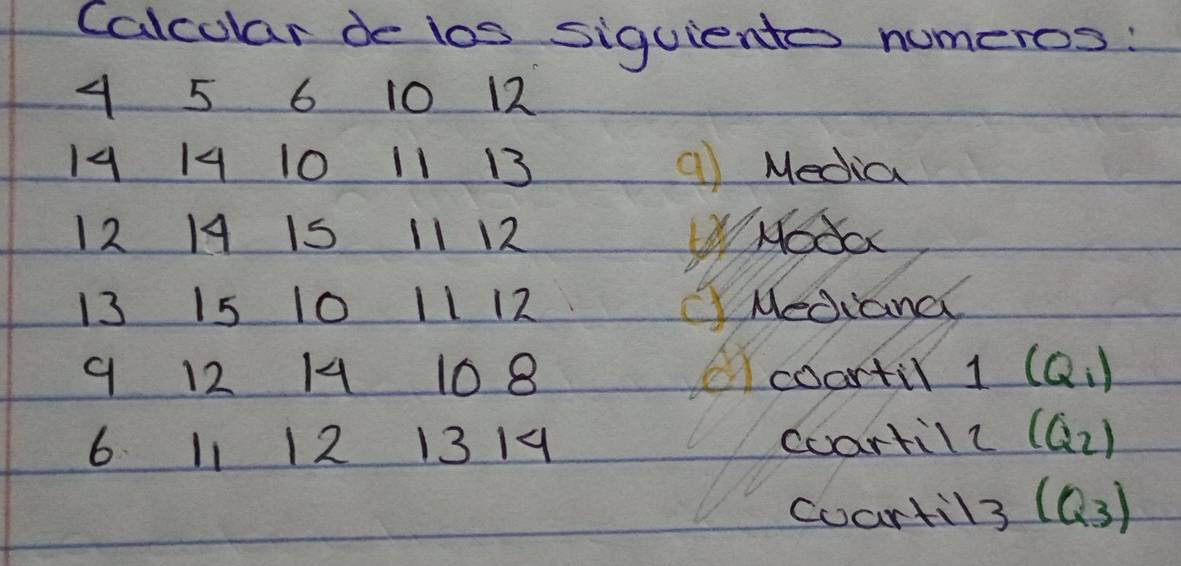 Calcular de los siguiento numeros:
4 5 6 10 12
14 14 10 11 13 a) Media
12 14 15 11 12 b) Moda
13 15 10 11 12 c) Mediana
9 12 14 10 8 d) cuartil 1 (Q1)
6 11 12 13 14 cuartil 2 (Q2)
cuartil 3 (Q3)